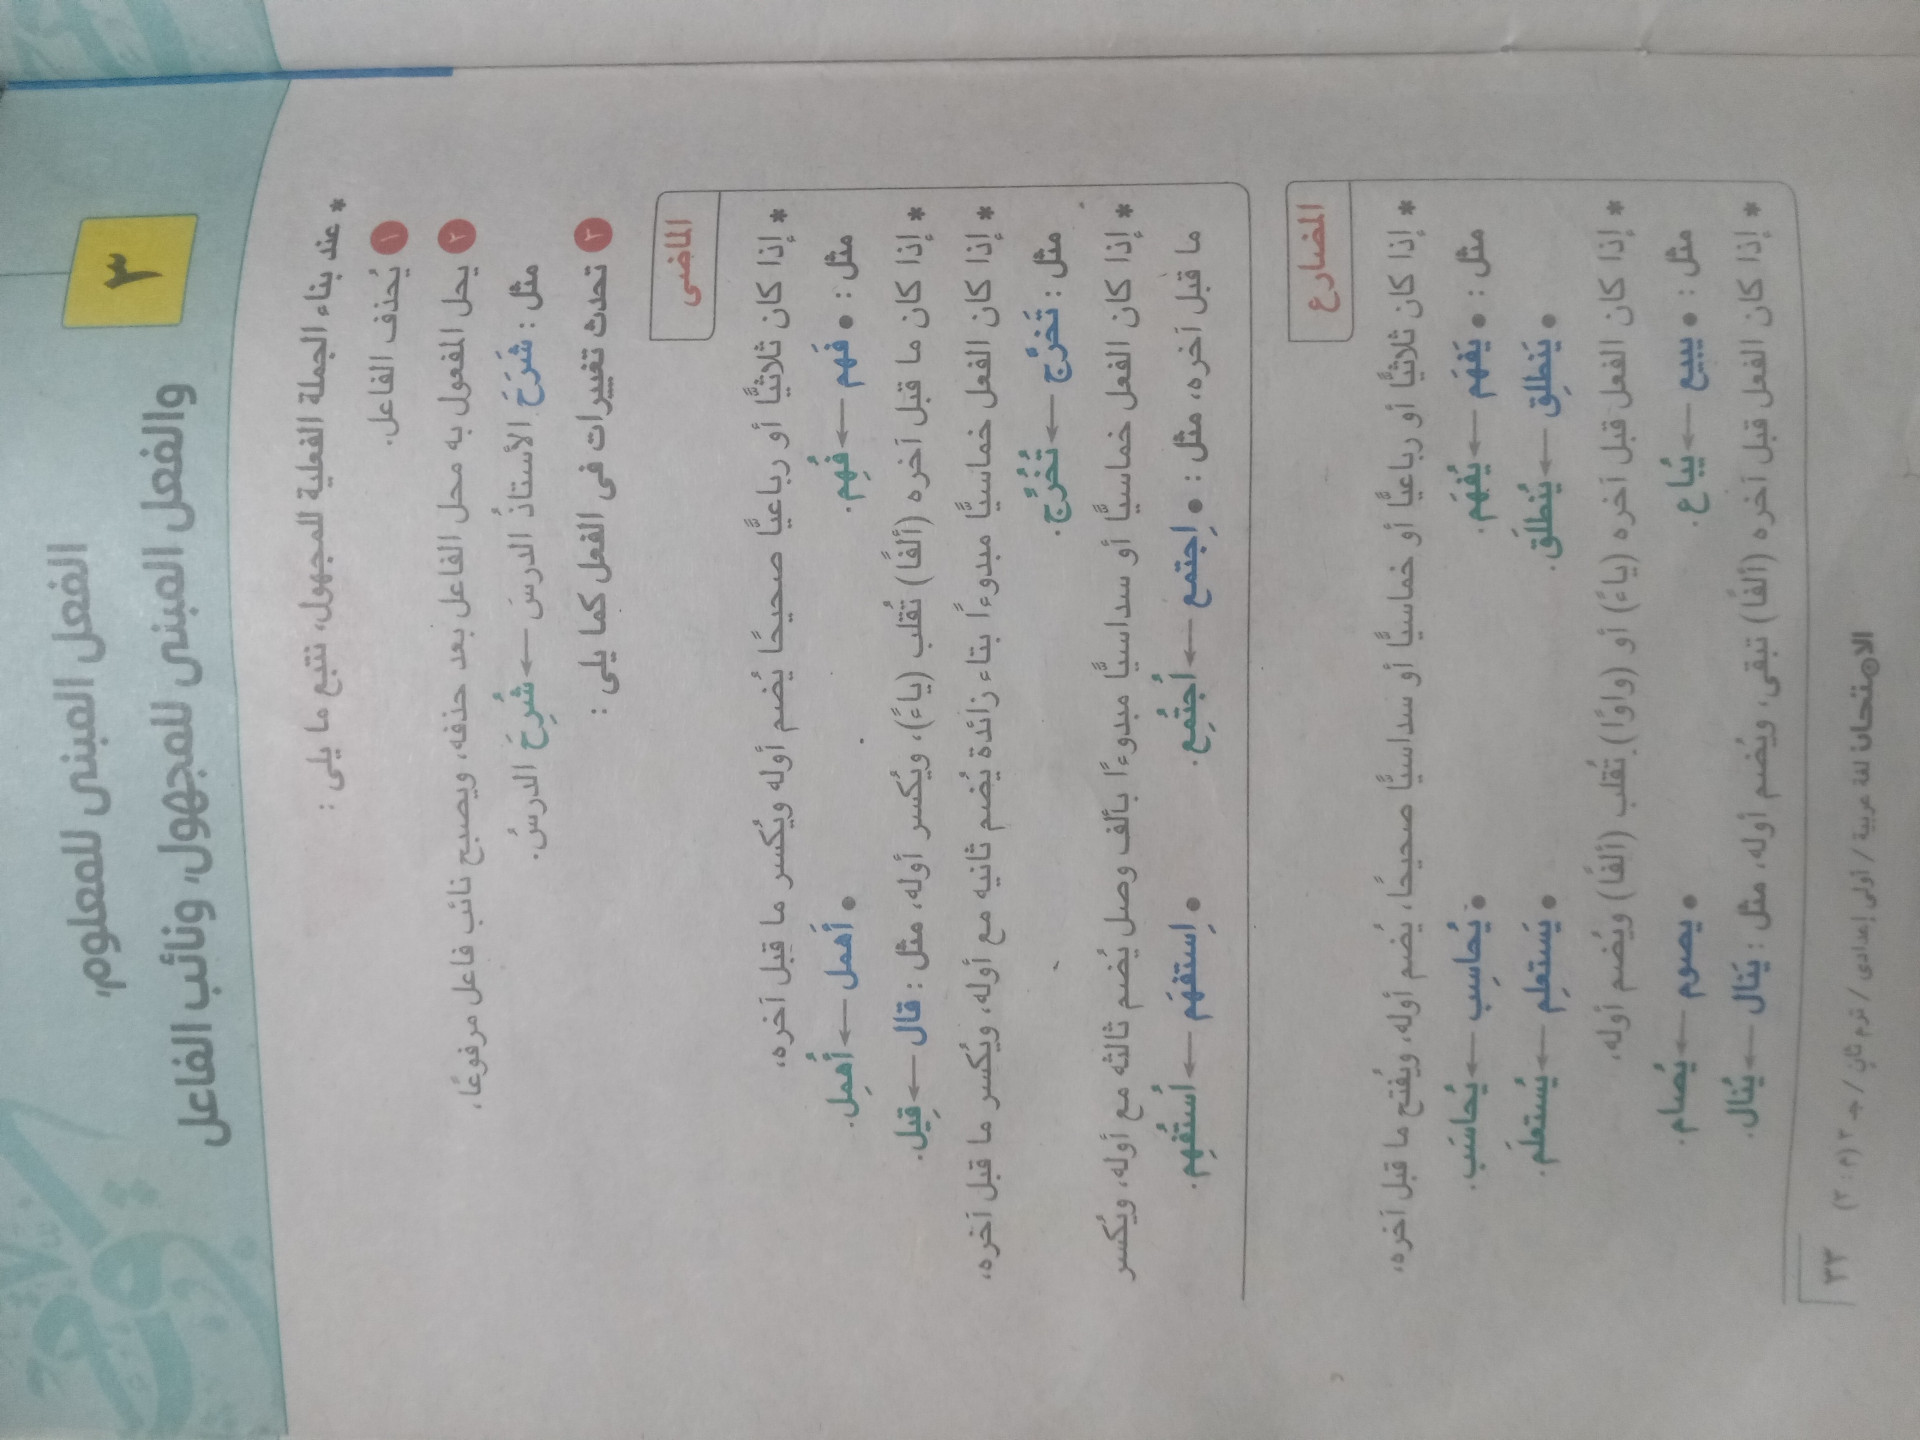 ٣
الفعل المبنى للمعلوم،
والفعل المبنى للمجهول، ونائب الفاعل
* عند بناء الجملة الفعلية للمجهول، نتبع ما يلى :
١ يُحذف الفاعل.
٢ يحل المفعول به محل الفاعل بعد حذفه، ويصبح نائب فاعل مرفوعًا،
مثل : شَرَحَ الأستاذُ الدرسَ ← شُرِحَ الدرسُ.
٣ تحدث تغييرات فى الفعل كما يلى :
الماضى
* إذا كان ثلاثيًّا أو رباعيًّا صحيحًا يُضم أوله ويُكسر ما قبل آخره،
مثل : • فَهَم ← فُهِم. • أَهمَل ← أُهمِل.
* إذا كان ما قبل آخره (ألفًا) تُقلب (ياءً)، ويُكسر أوله، مثل : قال ← قِيل.
* إذا كان الفعل خماسيًّا مبدوءًا بتاء زائدة يُضم ثانيه مع أوله، ويُكسر ما قبل آخره،
مثل : تَخَرَّج ← تُخُرِّج.
* إذا كان الفعل خماسيًّا أو سداسيًّا مبدوءًا بألف وصل يُضم ثالثه مع أوله، ويُكسر
ما قبل آخره، مثل : • اِجتمع ← اُجتُمِع. • اِستفهَم ← اُستُفهِم.
المضارع
* إذا كان ثلاثيًّا أو رباعيًّا أو خماسيًّا أو سداسيًّا صحيحًا، يُضم أوله، ويُفتح ما قبل آخره،
مثل : • يَفهَم ← يُفهَم. • يُحاسِب ← يُحاسَب.
• يَنطلِق ← يُنطلَق. • يَستعلِم ← يُستعلَم.
* إذا كان الفعل قبل آخره (ياءً) أو (واوًا) تُقلب (ألفًا) ويُضم أوله،
مثل : • يبيع ← يُباع. • يصوم ← يُصام.
* إذا كان الفعل قبل آخره (ألفًا) تبقى، ويُضم أوله، مثل : يَنال ← يُنال.
الامتحان لغة عربية / أولى إعدادى / ترم ثانٍ / جـ ٢ (م : ٣) ٣٣